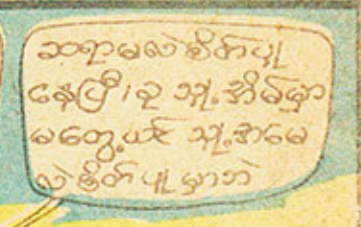 ဆရာမလဲ စိတ်ပူ
နေပြီ၊ ခု သူ့အိမ်မှာ
မတွေ့ယင် သူ့အမေ
လဲ စိတ်ပူမှာဘဲ